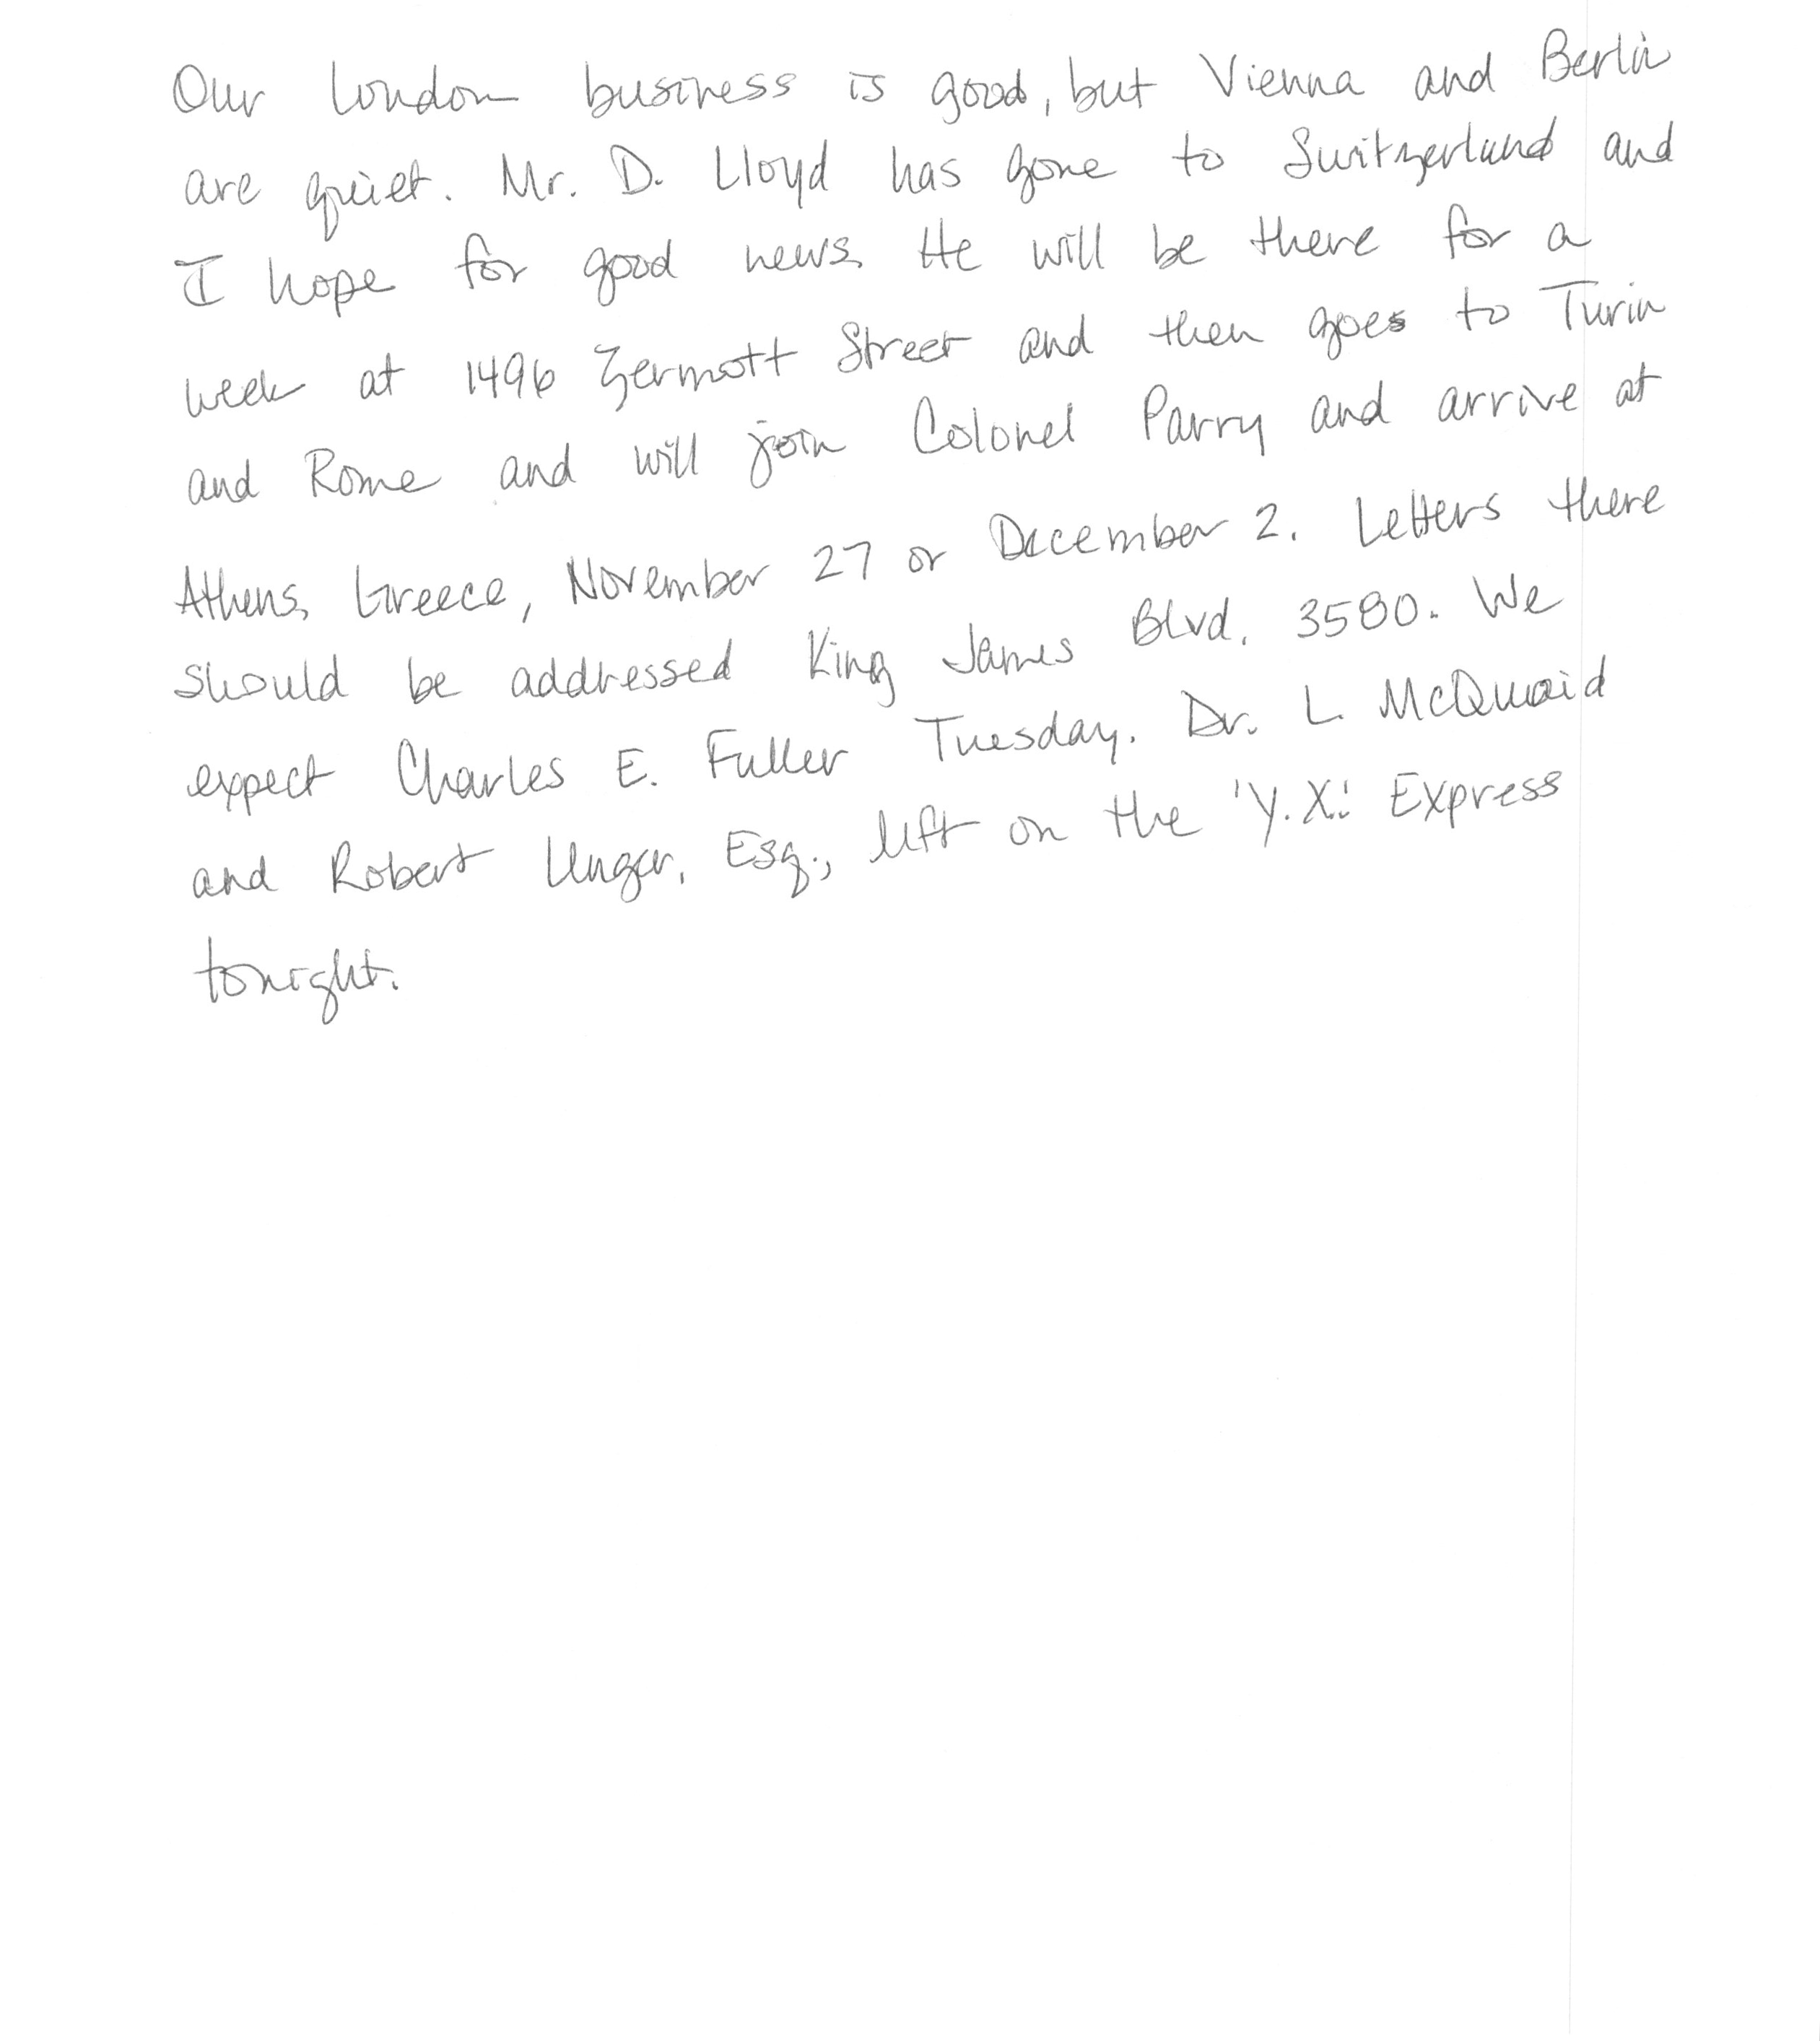 Our London business is good, but Vienna and Berlin
are quiet. Mr. D. Lloyd has gone to Switzerland and
I hope for good news. He will be there for a
week at 1496 Zermott Street and then goes to Turin
and Rome and will join Colonel Parry and arrive at
Athens, Greece, November 27 or December 2. Letters there
should be addressed King James Blvd. 3580. We
expect Charles E. Fuller Tuesday. Dr. L. McQuaid
and Robert Unger, Esq., left on the 'Y.X.' Express
tonight.